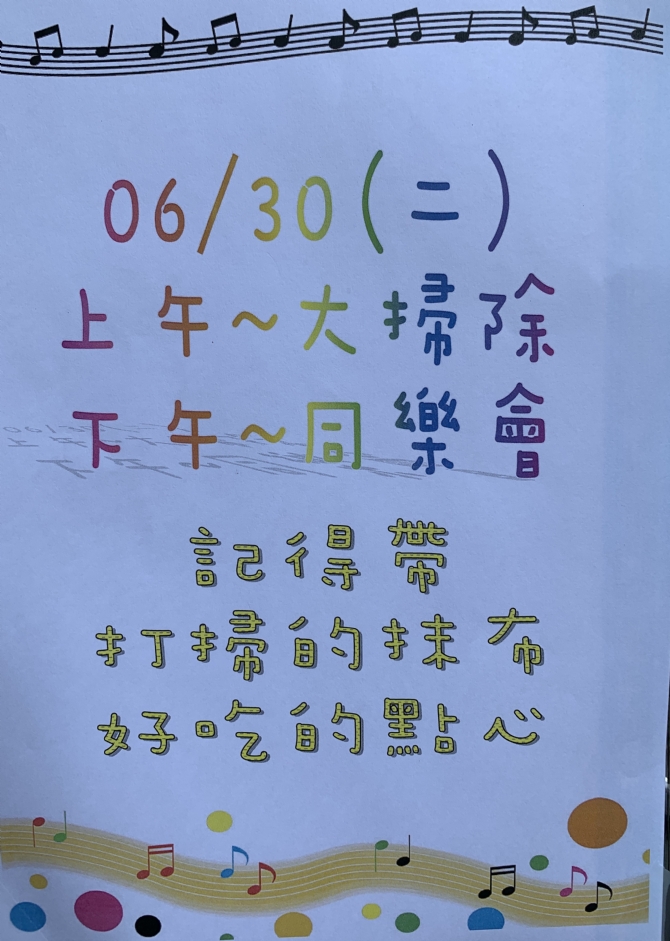 06/30(二)
上午~大掃除
下午~同樂會
記得帶
打掃的抹布
好吃的點心